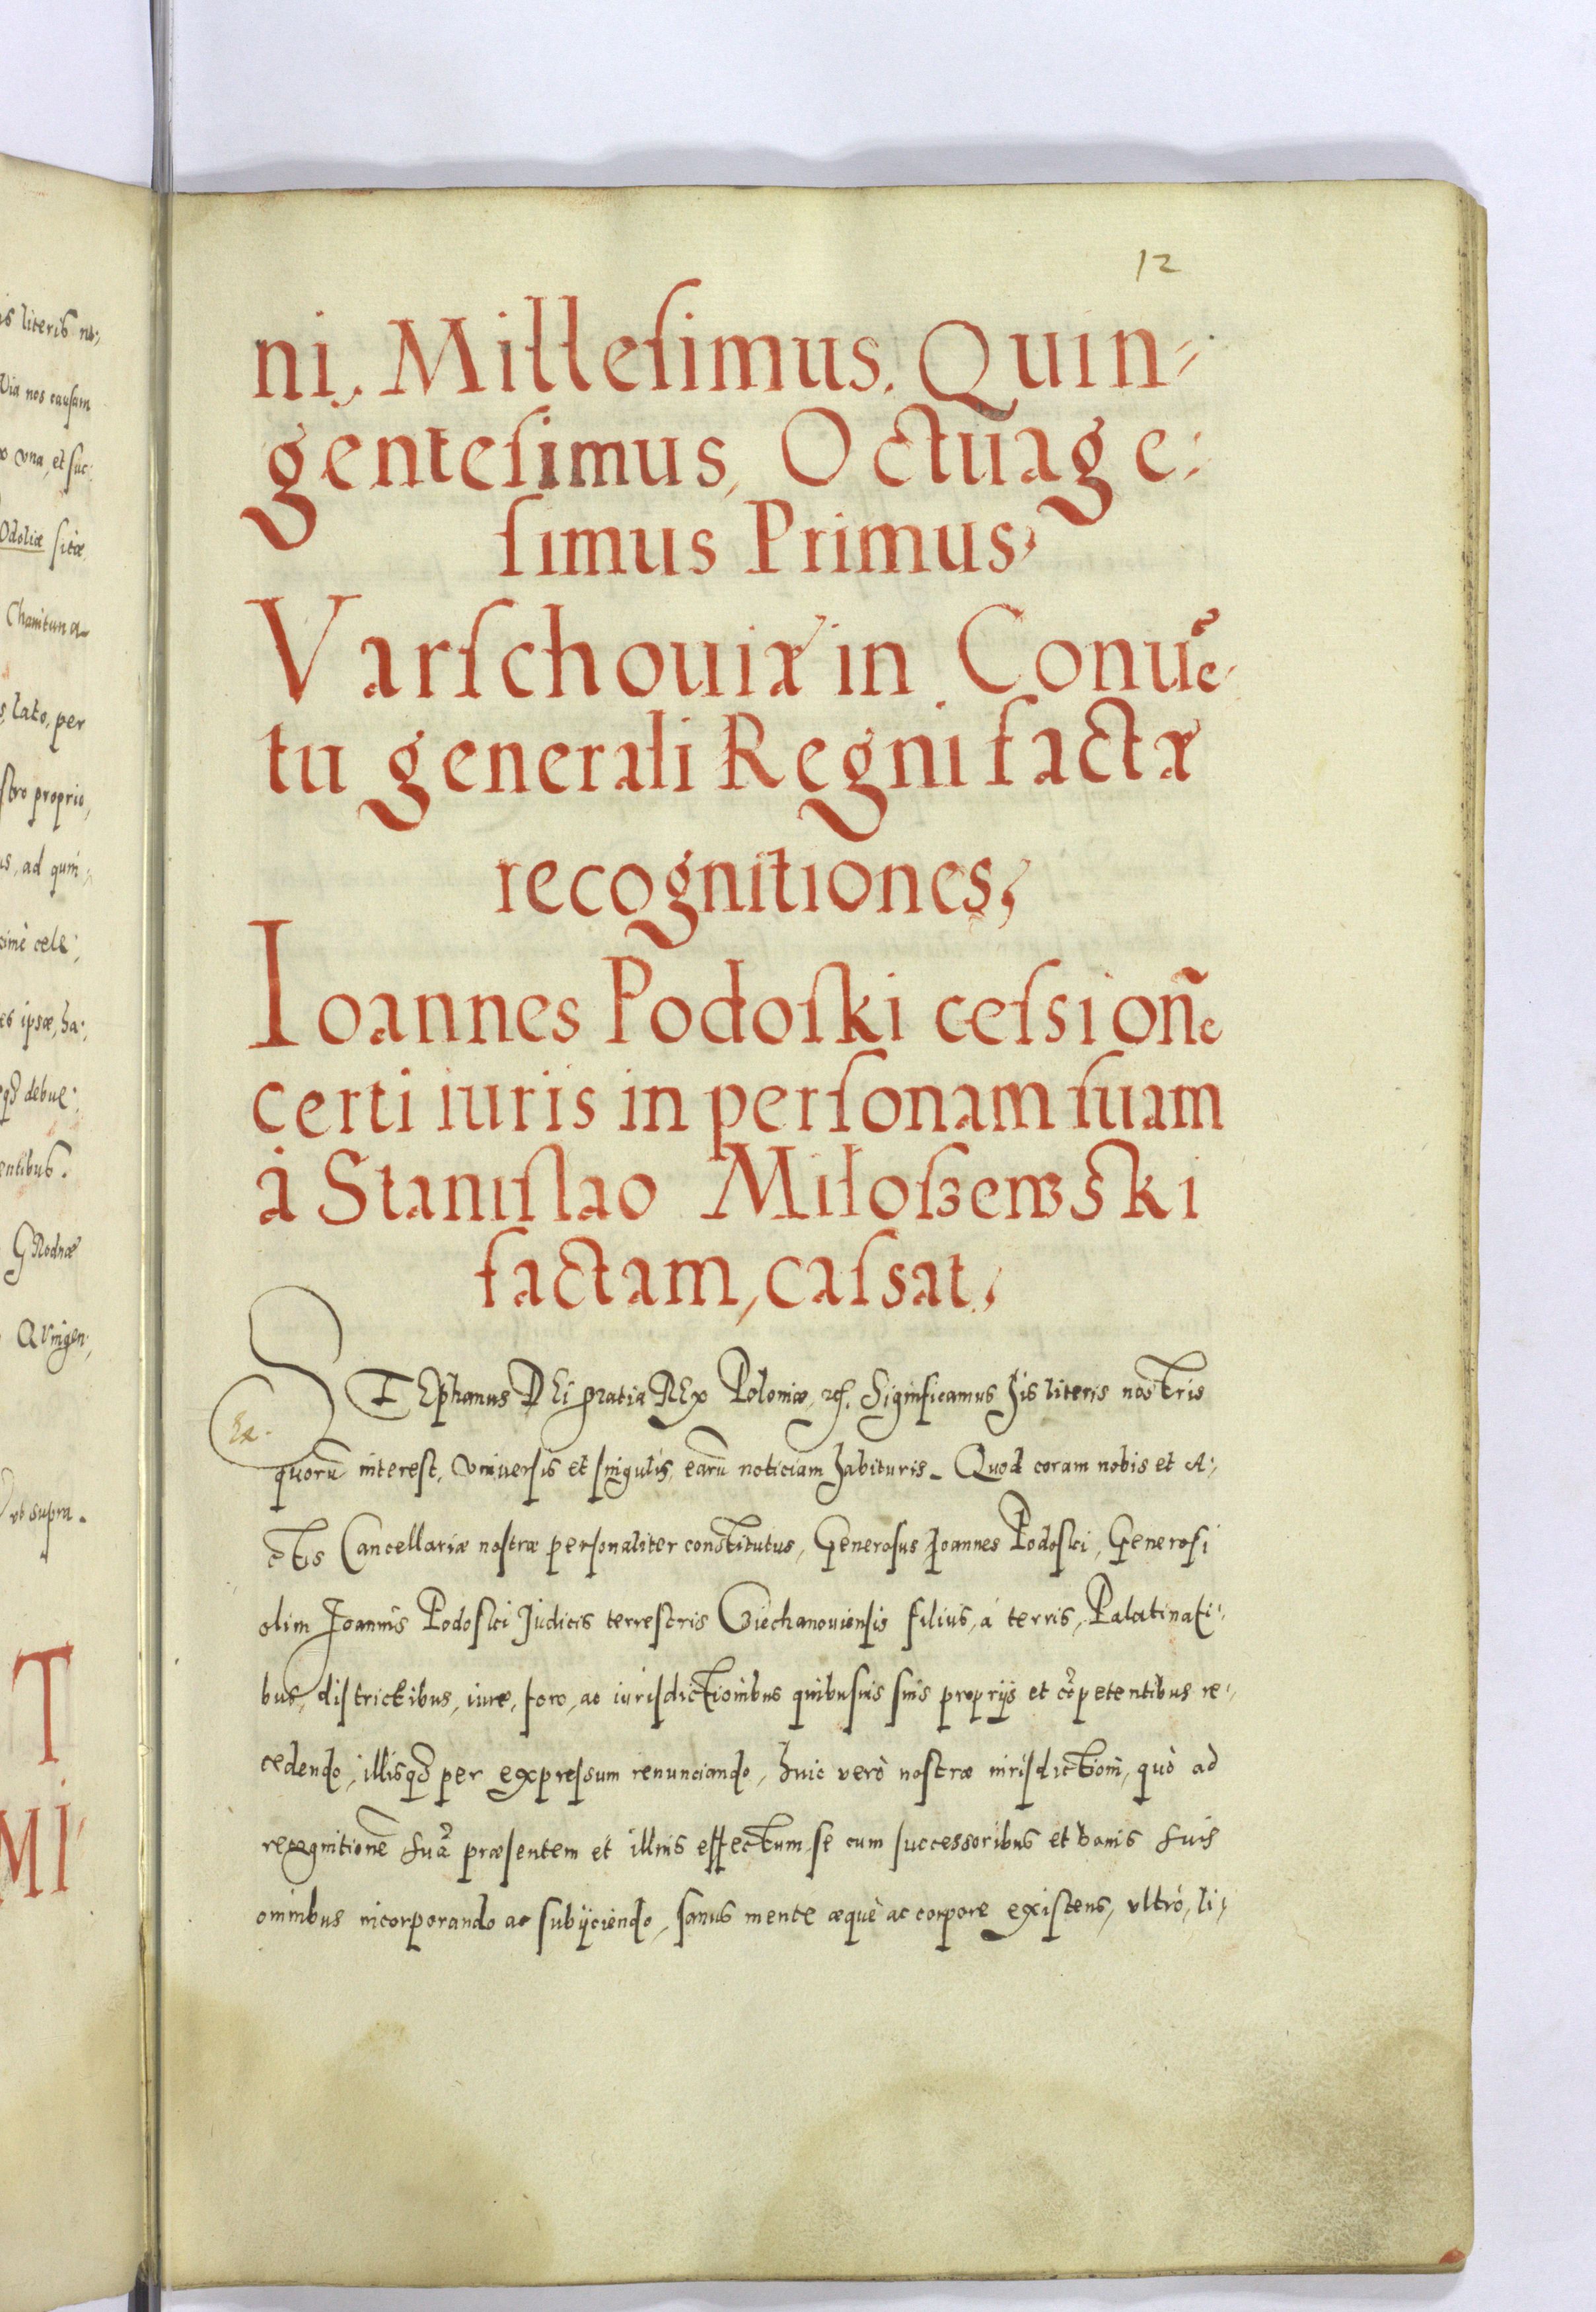 is literis no:,
Via nos causam
vna, et suc:
Odoliæ sitæ
Chanitun
lato, per
stro proprio,
us, ad quin:,
simè cele:,
es ipsæ, ha:,
qȝ debue:,
entibus.
GRodnæ
QVingen:,
vt supra.
T
MI
12
ni, Millesimus, Quin-
gentesimus, Octuage:
simus Primus,
Varschouiæ in Conuē-
tu generali Regni factæ
recognitiones,
Ioannes Podoski cessionē
certi iuris in personam suam
à Stanislao Miłoszewski
factam, cassat,
Ex.
STEphanus DEi gratia REx Poloniæ, etc. Significamus his literis nostris
quorū interest, vniuersis et singulis, earū noticiam habituris. Quod coram nobis et A:,
ctis Cancellariæ nostræ personaliter constitutus, Generosus Joannes Podoski, Generosi
olim Joannis Podoski Judicis terrestris Ciechanouiensis filius, à terris, Palatinati:,
bus, districtibus, iure, foro, ac iurisdictionibus quibusuis suis proprijs et cōpetentibus re:,
cedendo, illisqȝ per expressum renunciando, huic verò nostræ iurisdictioni, quò ad
recognitionē suā præsentem et illius effectum, se cum successoribus et bonis suis
omnibus incorporando ac subijciendo, sanus mente æquè ac corpore existens, vltrò, li:,